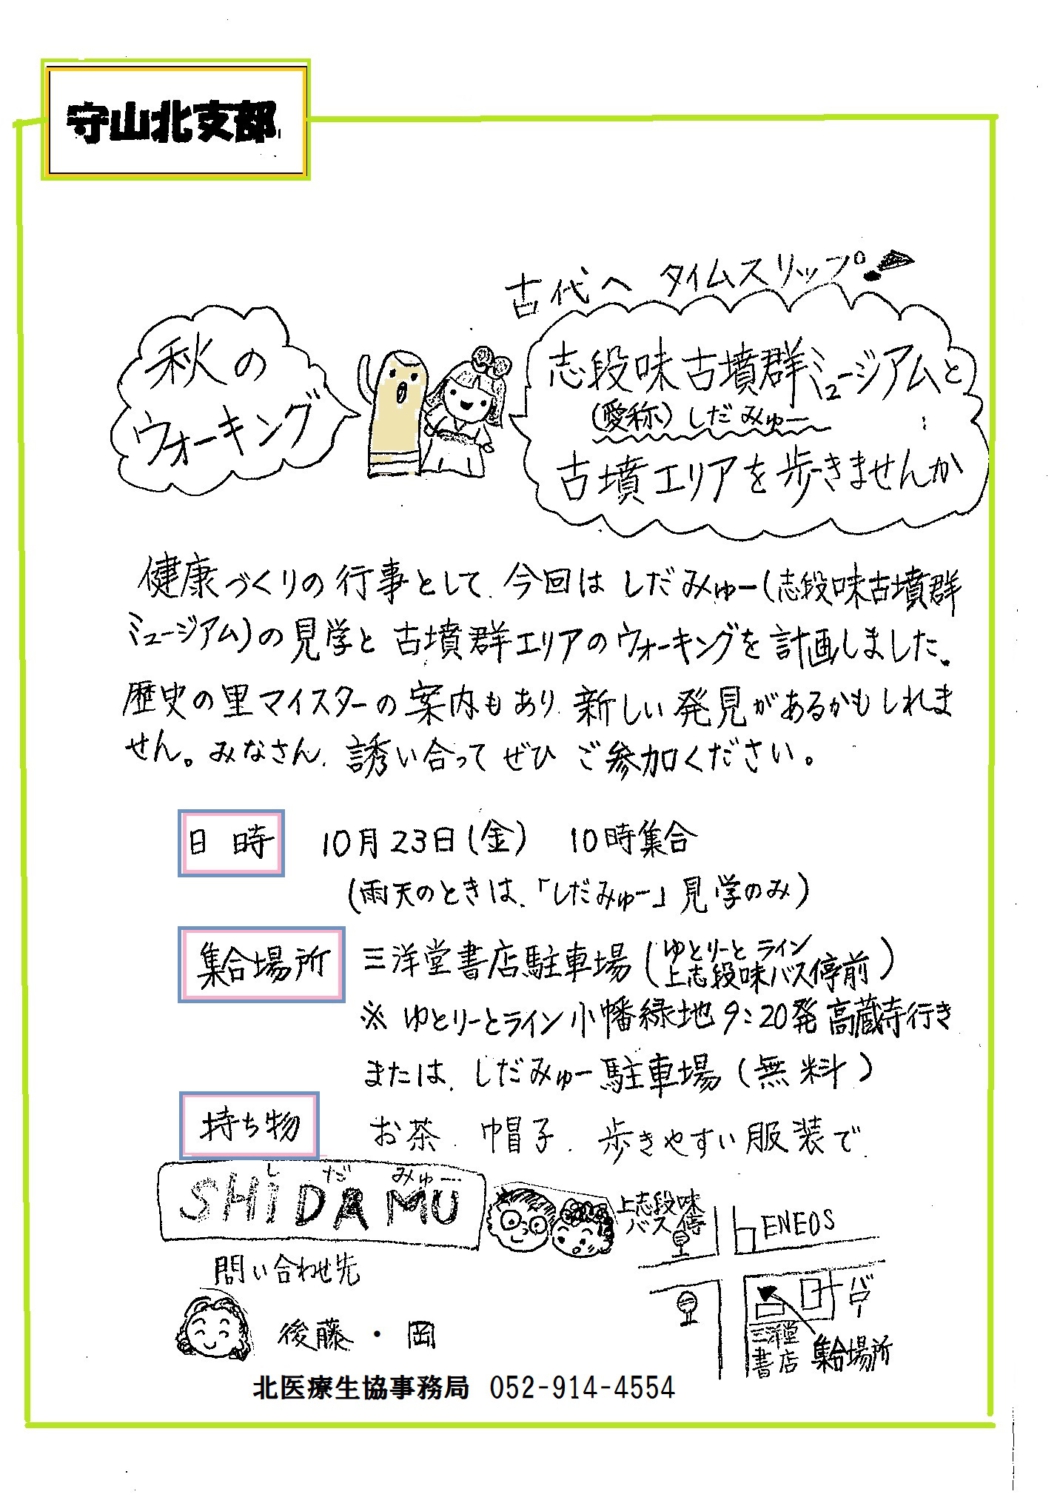 守山北支部
古代へ タイムスリップ!
秋の
ウォーキング
志段味古墳群ミュージアムと
(愛称) しだみゅー
古墳エリアを歩きませんか
健康づくりの行事として、今回は しだみゅー(志段味古墳群
ミュージアム)の見学と 古墳群エリアのウォーキングを計画しました。
歴史の里マイスターの案内もあり、新しい発見があるかもしれま
せん。みなさん、誘い合って ぜひ ご参加ください。
日時 10月23日(金) 10時集合
(雨天のときは、「しだみゅー」見学のみ)
集合場所 三洋堂書店駐車場(ゆとりーとライン
上志段味バス停前)
※ ゆとりーとライン小幡緑地9:20発高蔵寺行き
または、しだみゅー駐車場(無料)
持ち物 お茶、帽子、歩きやすい服装で
しだみゅー
SHiDAMU
上志段味
バス停
ENEOS
問い合わせ先
後藤・岡
三洋堂
書店
集合場所
北医療生協事務局 052-914-4554